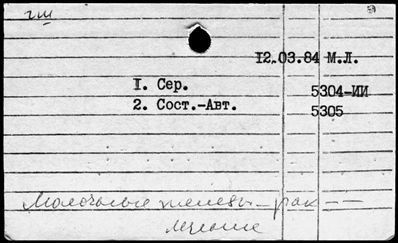 гш
12.03.84 М.Л.
I. Сер. 5304-ИИ
2. Сост.-Авт. 5305
Молочные железы - рак -
лечение